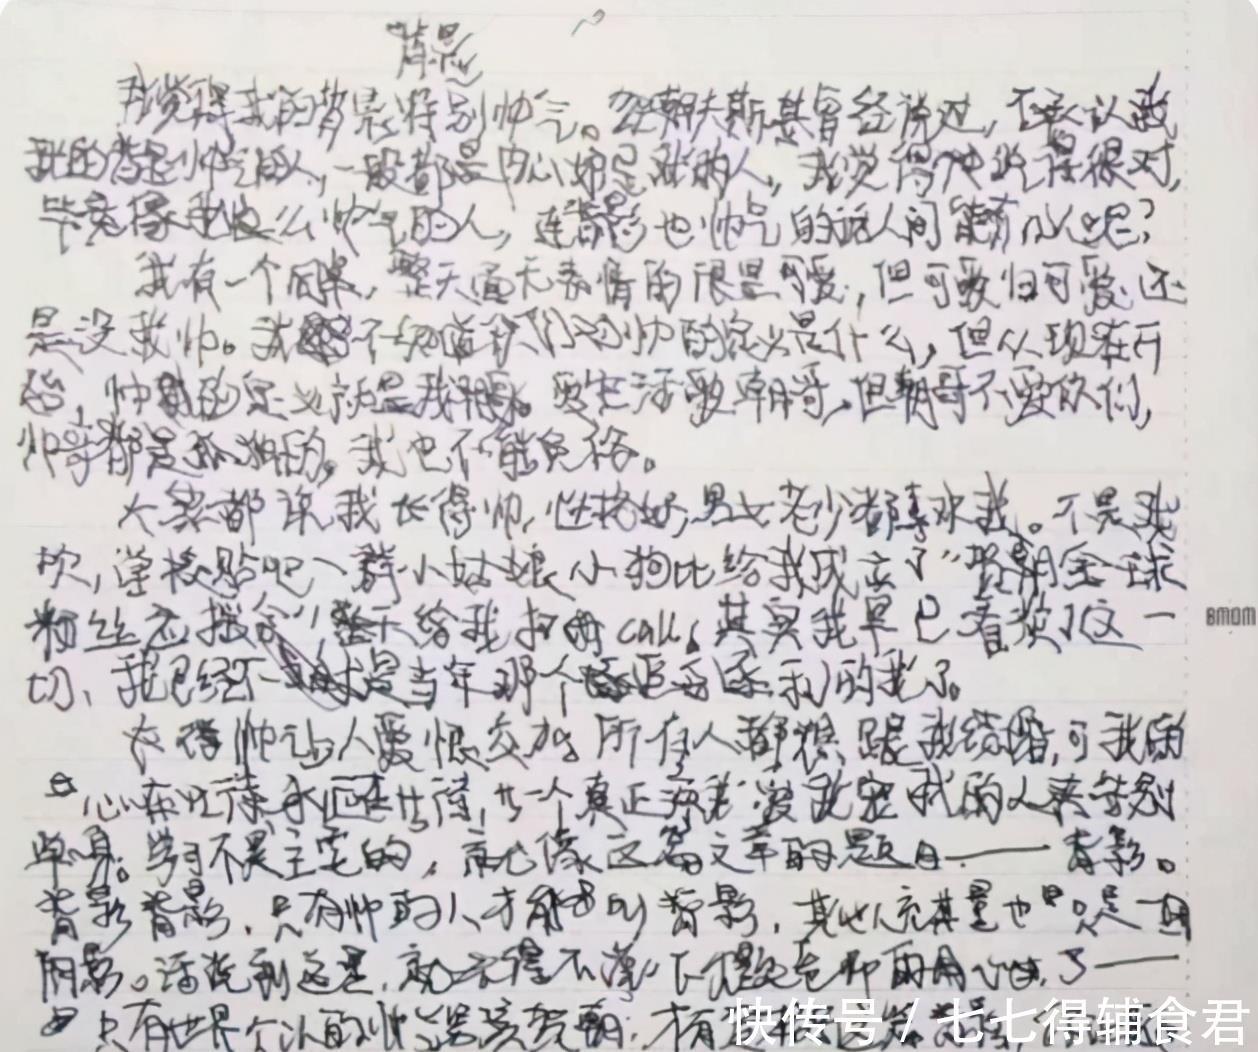 背影
我觉得我的背影特别帅气。陀朝夫斯基曾经说过，不承认我
我的背影帅气的人，一般都是内心如是我的人，我觉得他说得很对，
毕竟像我这么帅气的人，连背影也帅气的话人间能有几人呢？
我有一个同桌，整天面无表情的很是可爱，但可爱归可爱，还
是没我帅。我不知道你们对帅的定义是什么，但从现在开
始，帅的定义就是我。爱生活爱朝哥，但朝哥不爱你们，
帅哥都是孤独的，我也不能免俗。
大家都说我长得帅，性格好，男女老少都喜欢我。不是我
吹，学校贴吧一群小姑娘小狗比给我成立了“朝全球
粉丝应援会”整天给我打call，其实我早已看淡了这一
切，我已经不是当年那个追名逐利的我了。
太帅让人爱恨交加，所有人都想跟我结婚，可我的
心在等待，永远在等待，等一个真正深爱我的人来告别
单身。学习不是主要的，就像这篇文章的题目——背影。
背影背影，只有帅的人才能叫背影，其他人充其量也只是一团
阴影。话说到这里，就不得不提起老师的用心了——
只有世界的帅，才有
快传号 / 七七得辅食君